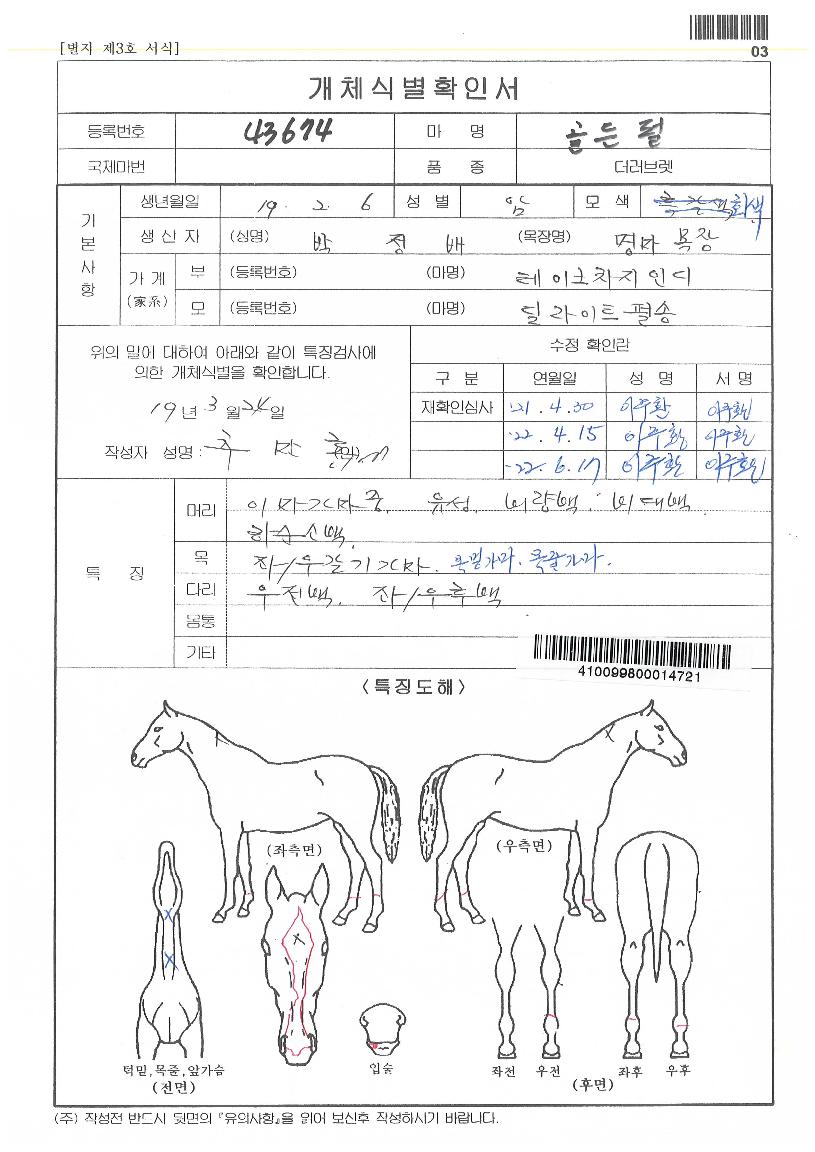 [별지 제3호 서식]
03
개체식별확인서
등록번호 43674 마 명 골든펄
국제마번 품 종 더러브렛
기본사항
생년월일 19. 2. 6 성 별 암 모 색 흑갈색 회색
생 산 자 (성명) 박 정 배 (목장명) 명마 목장
가 계 (家系)
부 (등록번호) (마명) 테이크차지인디
모 (등록번호) (마명) 딜라이트펄송
위의 말에 대하여 아래와 같이 특징검사에
의한 개체식별을 확인합니다.
19년 3월 24일
작성자 성명 :
수정 확인란
구 분 연월일 성 명 서 명
재확인심사 '21. 4. 30 이주환 이주환
'22. 4. 15 이주환 이주환
'22. 6. 17 이주환 이주환
특 징
머리 이마가마중, 유성, 비량백, 비대백
하순소백
목 좌/우갈기가마. 목밑가마. 목줄가마.
다리 우전백, 좌/우후백
몸통
기타
410099800014721
<특징도해>
(좌측면)
(우측면)
턱밑,목줄,앞가슴
(전면)
입술
좌전 우전 좌후 우후
(후면)
(주) 작성전 반드시 뒷면의 『유의사항』을 읽어 보신후 작성하시기 바랍니다.